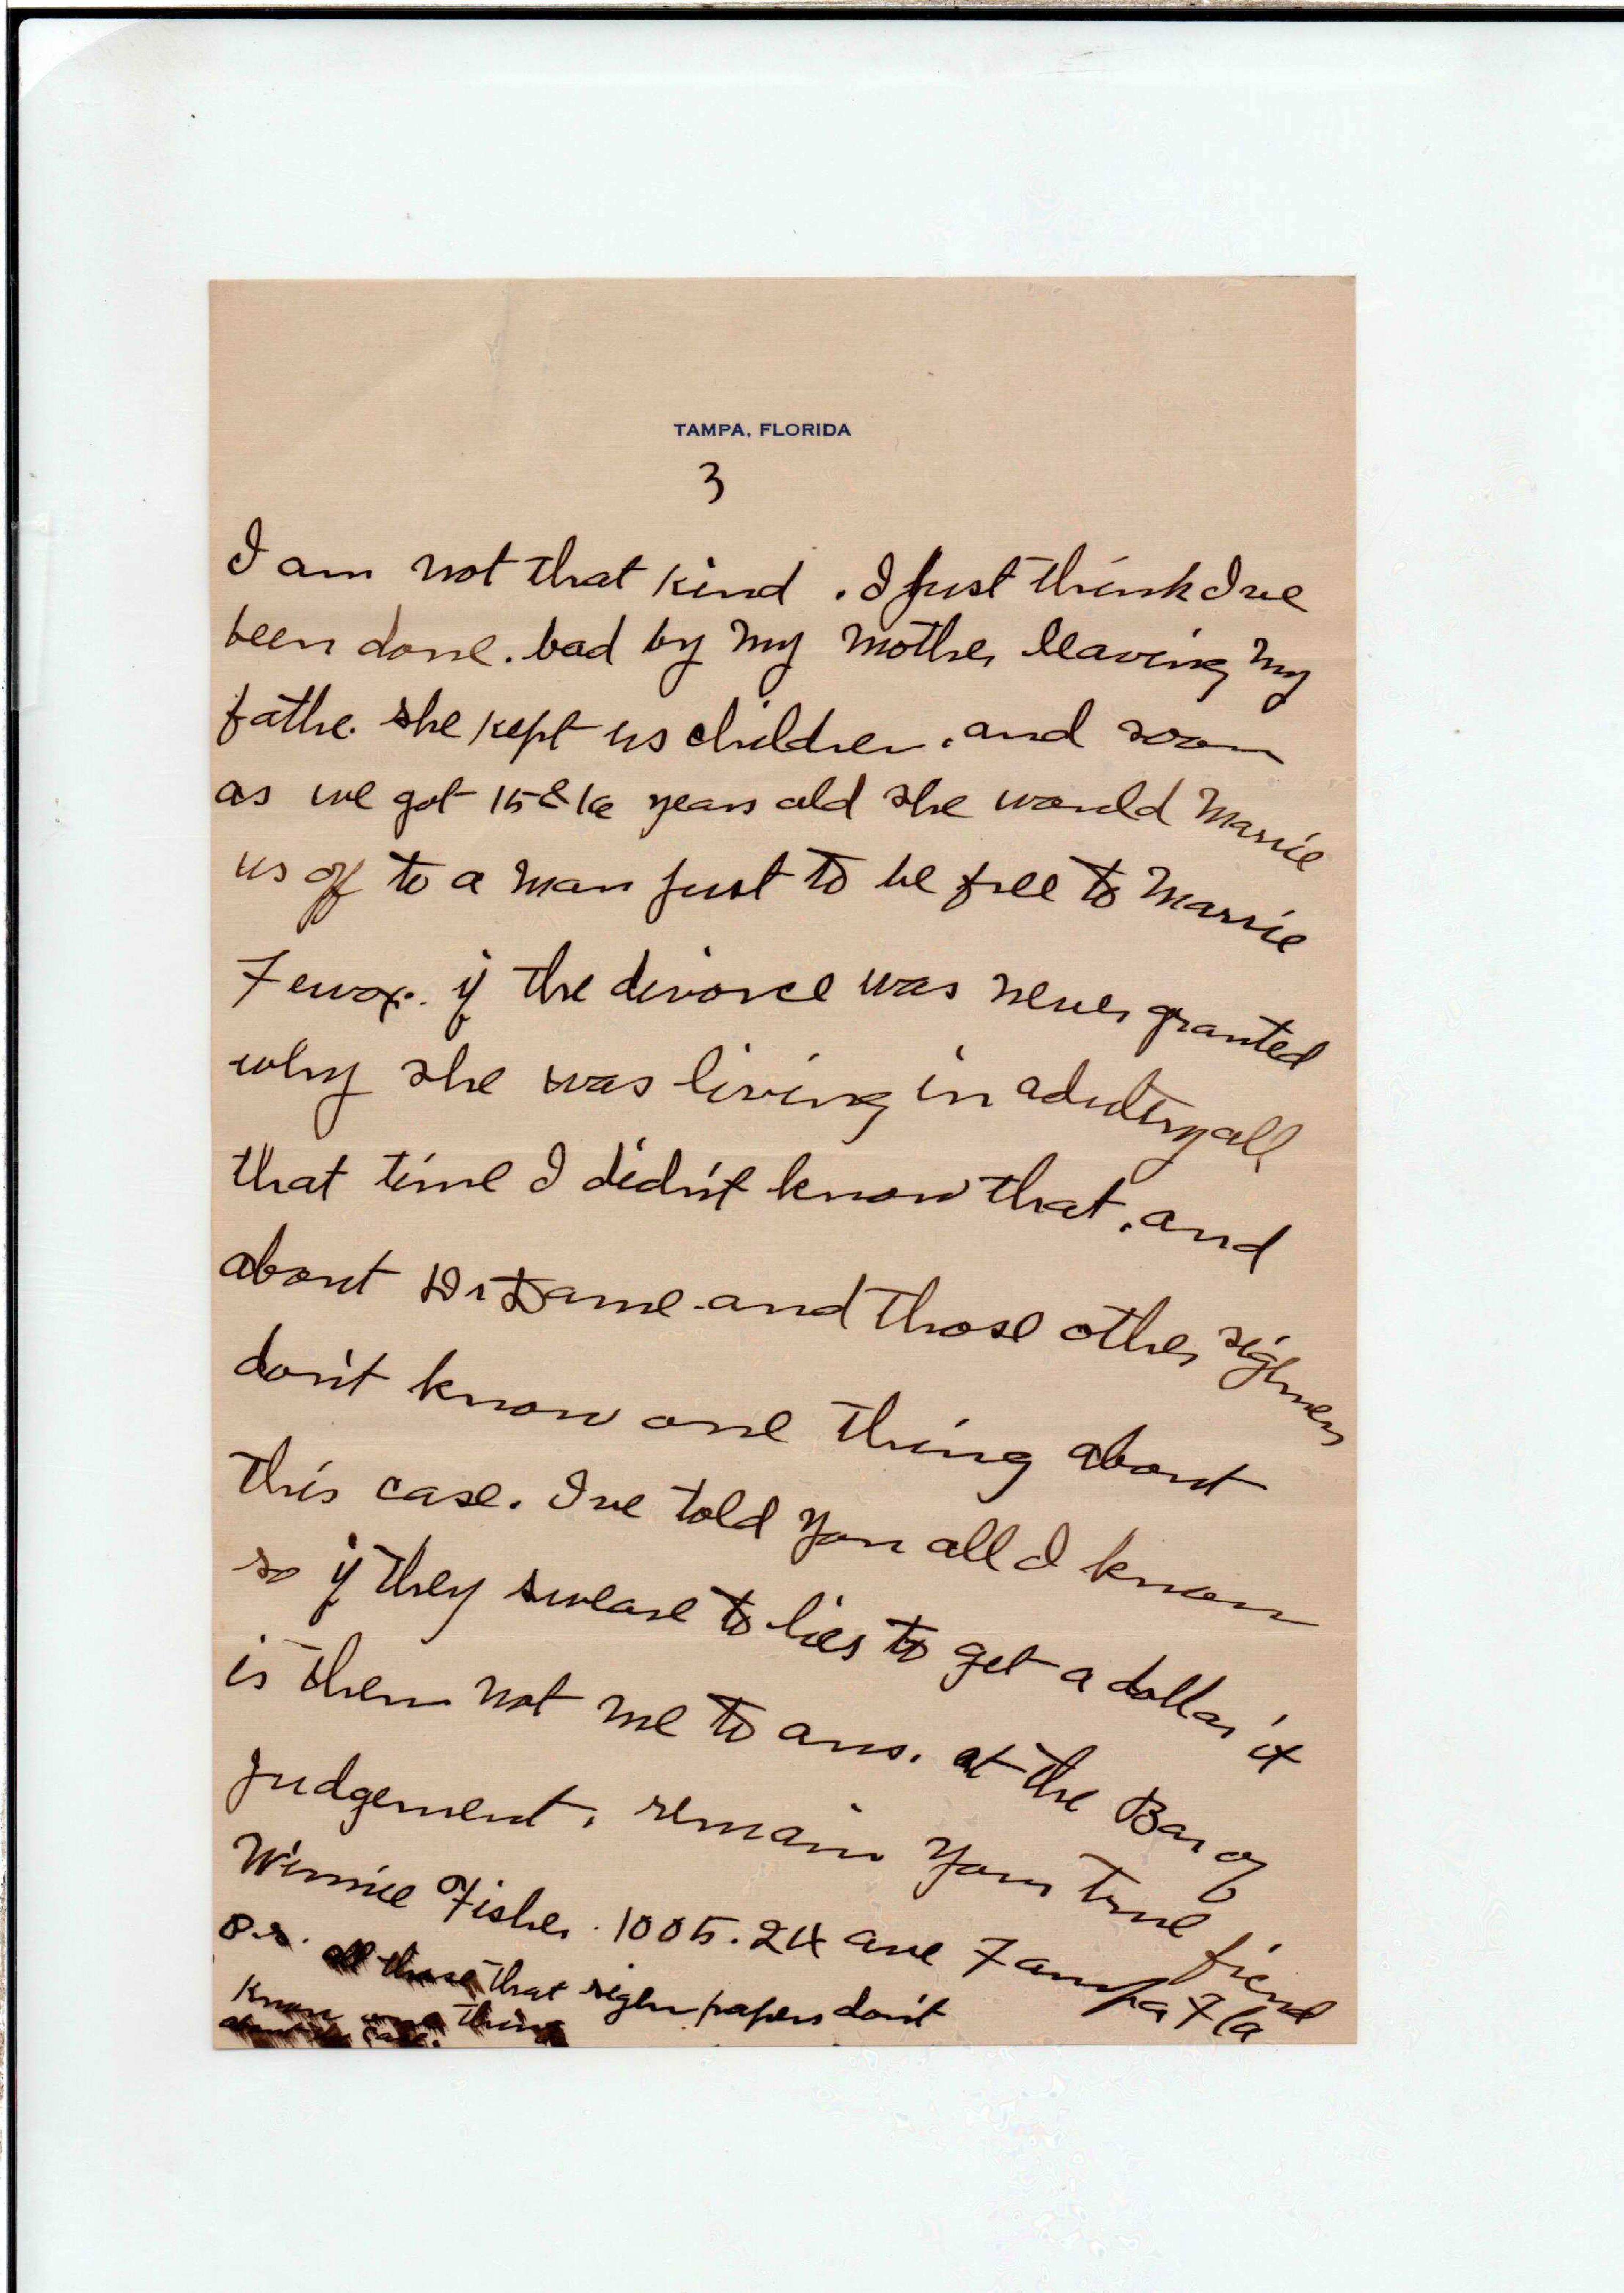 TAMPA, FLORIDA
3
I am not that kind. I just think Ive
been done. bad by my mother leaving my
fathe. she kept us children. and soon
as we got 15 & 16 years old she would Marrie
us off to a man just to be free to Marrie
Fewox. if the divorce was never granted
why she was living in adultry all
that time I did'nt know that. and
about Dr Dame and those other signers
don't know one thing about
this case. Ive told you all I know
so if they sweare to lies to get a dollar it
is them not me to ans. at the Bar of
Judgement. remain your true friend
Winnie Fisher. 1005. 24 ave Tampa Fla
P.S. all those that sigen papers don't
know one thing
about the case.